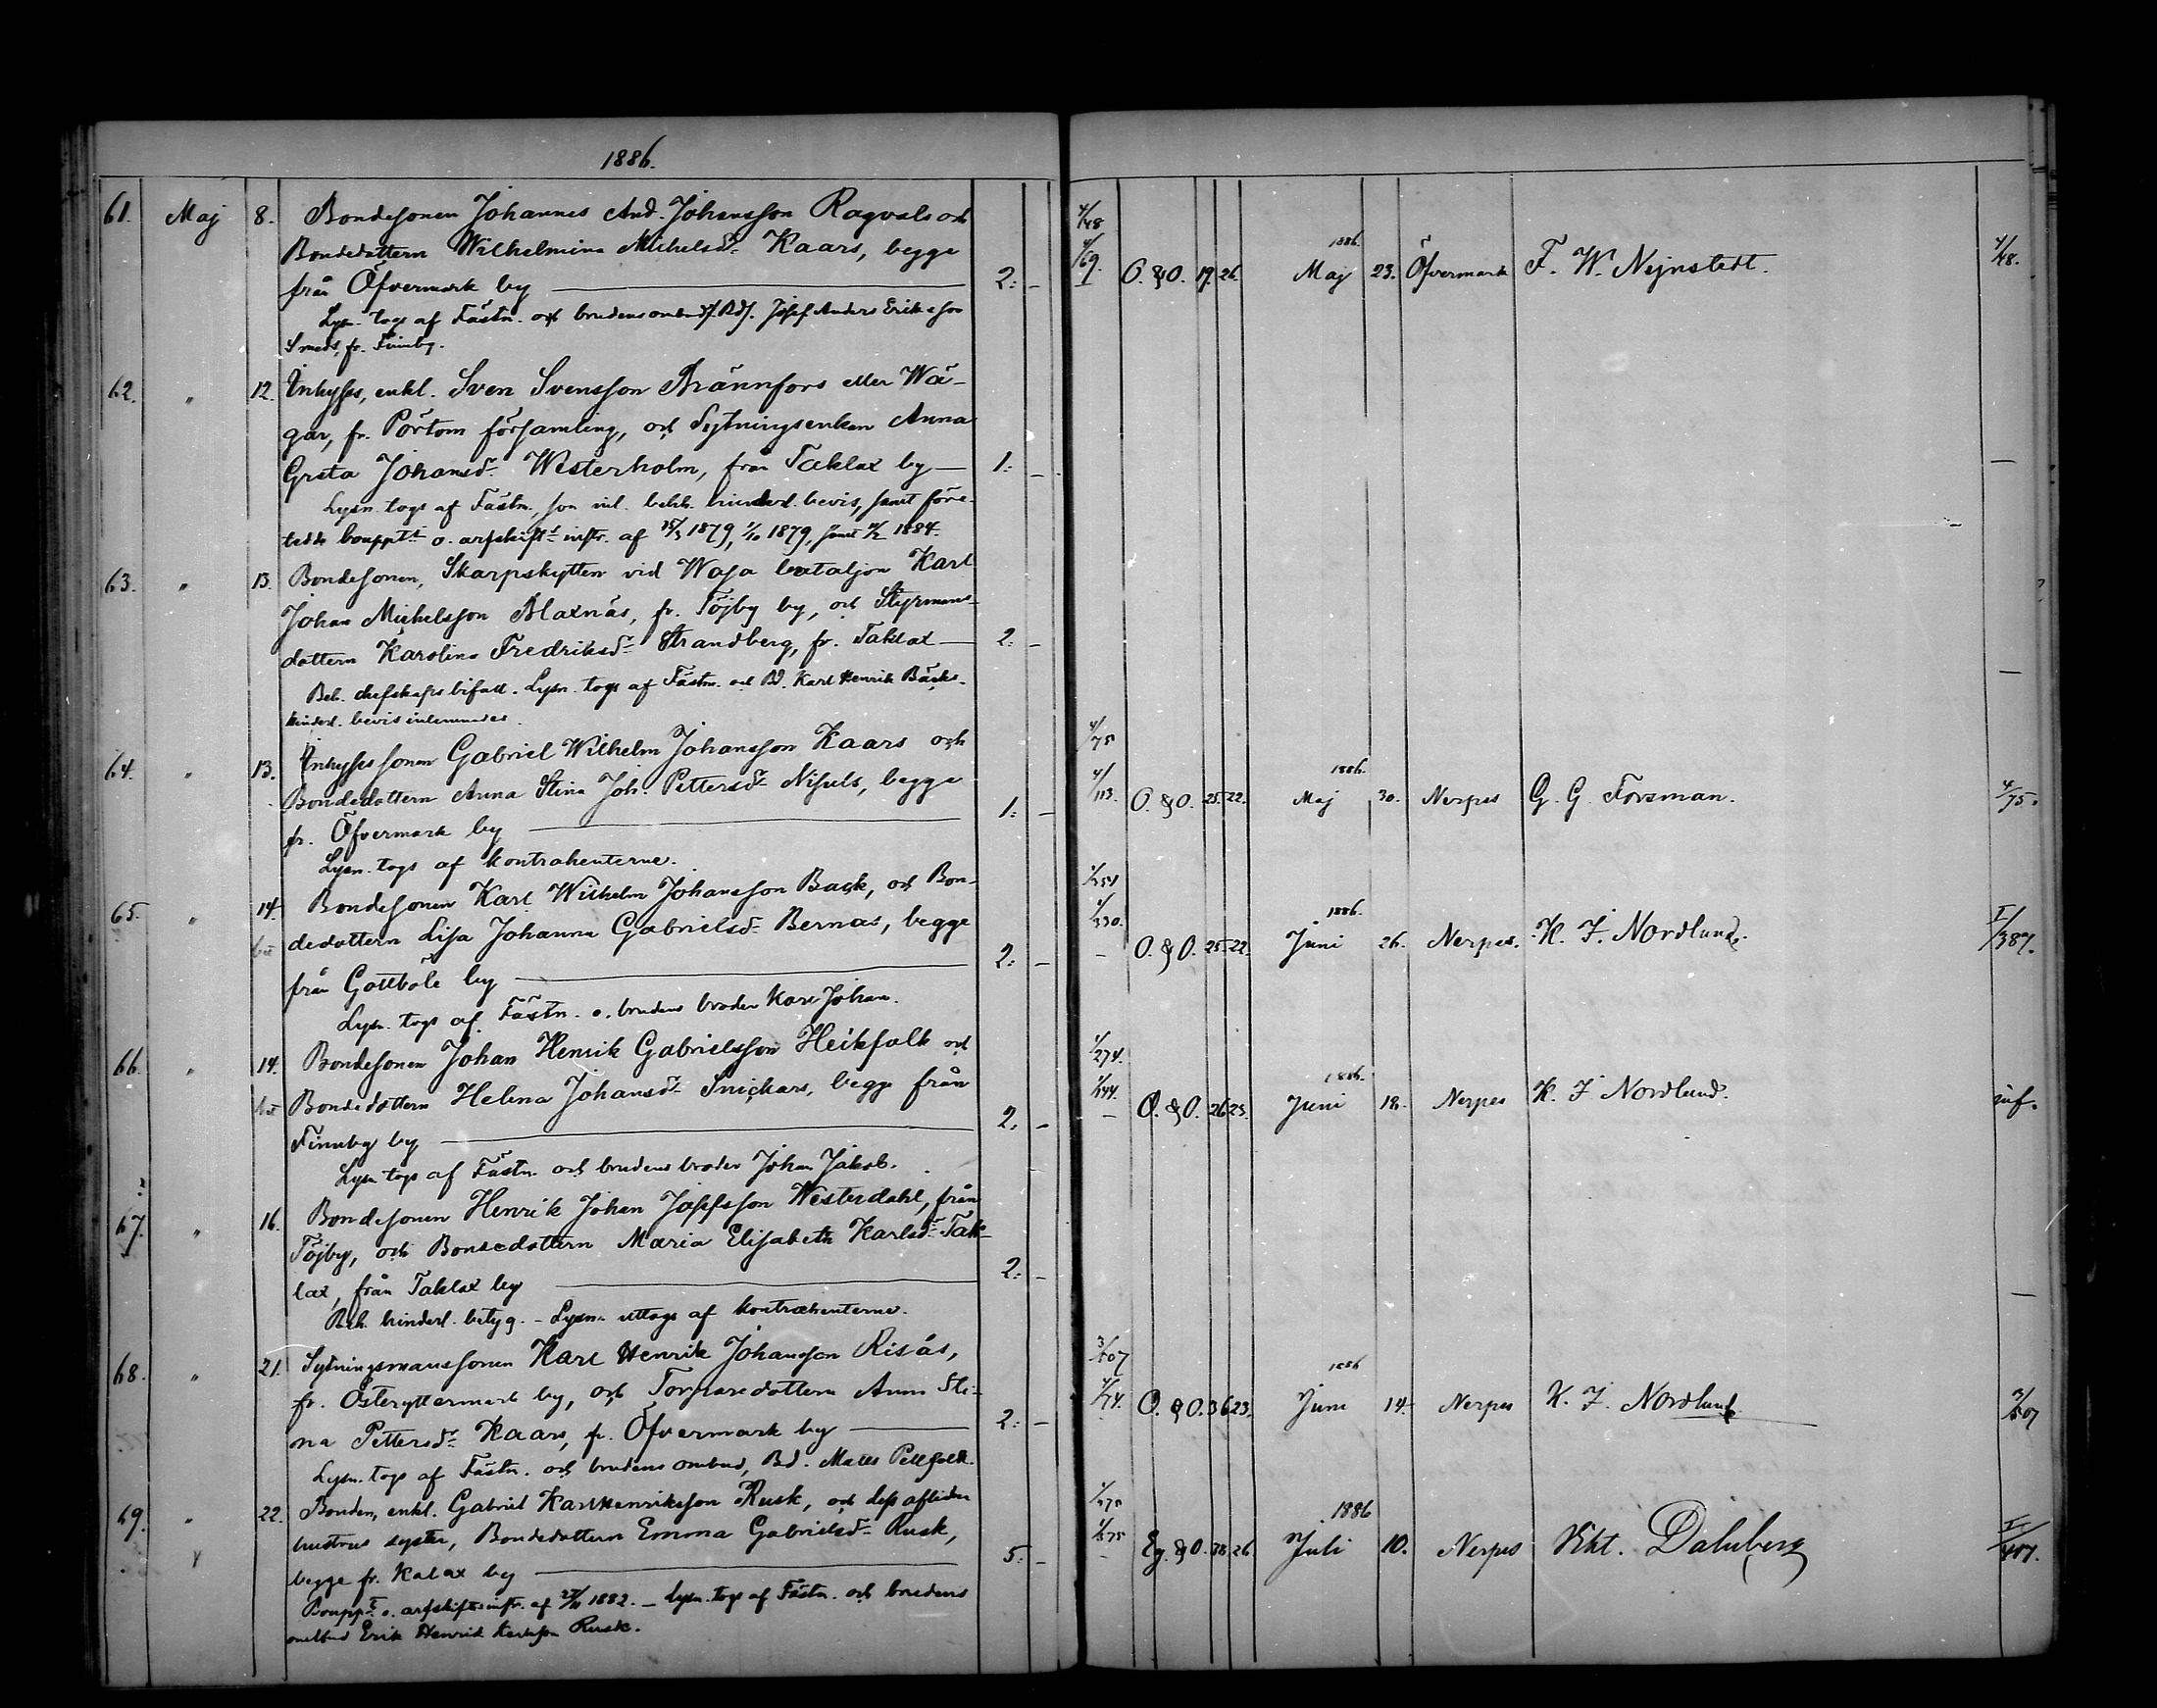 1886.
61. Maj 8. Bondesonen Johannes And. Johansson Ragvals och
Bondedottern Wilhelmina Mihelsdr Kaars, begge
från Öfvermark by 2: –
Lysn. togs af Fästm. och brudens ombud, Bds. Josef Anders Eriksson
Smeds, fr. Finnby.
4/48
4/69. O. & O. 19. 26. 1886. Maj 23. Öfvermark F. W. Nejnstedt. 4/48.
62. " 12. Inhyses, enkl. Sven Svensson Brännfors eller Wä-
gar, fr. Pörtom församling, och Sytningsenkan Anna
Greta Johansdr Westerholm, från Taklax by 1: – –
Lysn. togs af Fästm., som inl. behh. hinderl. bevis, samt före-
tedde bouppt. o. arfskift. instr. af 1879, 1/10 1879, samt 1884.
63. " 13. Bondesonen, Skarpskytten vid Wasa bataljon Karl
Johan Michelsson Blaxnäs, fr. Töjby by, och Styrmans-
dottern Karolina Fredriksdr Strandberg, fr. Taklax 2: – –
Beh. chefskaps bifall. Lysn. togs af Fästm. och Bd. Karl Henrik Bäcks.
hinderl. bevis inlemnades.
64. " 13. Inhysessonen Gabriel Wilhelm Johansson Kaars och
Bondedottern Anna Stina Joh. Pettersdr Nisuls, begge
fr. Öfvermark by 1: –
Lysn. togs af kontrahenterne.
4/75
4/113. O. & O. 25. 22. 1886. Maj 30. Nerpes G. G. Forsman. 4/75.
65. " 14. Bondesonen Karl Wilhelm Johansson Back, och Bon-
dedottern Lisa Johanna Gabrielsdr Bernas, begge
från Gottböle by 2: –
Lysn. togs af Fästm. o. brudens broder Karl Johan.
1/330. – O. & O. 25. 22. 1886. Juni 26. Nerpes. K. J. Nordlund. I/387.
66. " 14. Bondesonen Johan Henrik Gabrielsson Heikfolk och
Bondedottern Helena Johansdr Snickars, begge från
Finnby by 2. –
Lysn togs af Fästm. och brudens broder Johan Jakob.
1/274.
1/244. – O. & O. 26 25. 1886. Juni 18. Nerpes K. J Nordlund. inf.
67. " 16. Bondesonen Henrik Johan Josefsson Westerdahl, från
Töjby, och Bondedottern Maria Elisabeth Karlsdr Tak-
lax, från Taklax by 2: – –
Beh. hinderl. betyg. – Lysn. uttogs af kontrahenterne.
68. " 21. Sytningsmanssonen Karl Henrik Johansson Risås,
fr. Österyttermark by, och Torparedottern Anna Sti-
na Pettersdr Kaars, fr. Öfvermark by 2: –
Lysn. togs af Fästm. och brudens ombud, Bd. Matts Pellfolk.
4/74. O. & O. 36 23. 1886 Juni 14 Nerpes K. J. Nordlund
69. " 22. Bonden, enkl. Gabriel Karl Henriksson Rusk, och dess aflidna
hustrus syster, Bondedottern Emma Gabrielsdr Rusk,
begge fr. Kalax by 5: –
Bouppt. o. arfskiftsinstr. af 1882. – Lysn. togs af Fästm. och brudens
ombud Erik Henrik Karlsson Rusk.
Eg. & O. 38. 26. 1886 Juli 10. Nerpes Vikt. Dahlberg